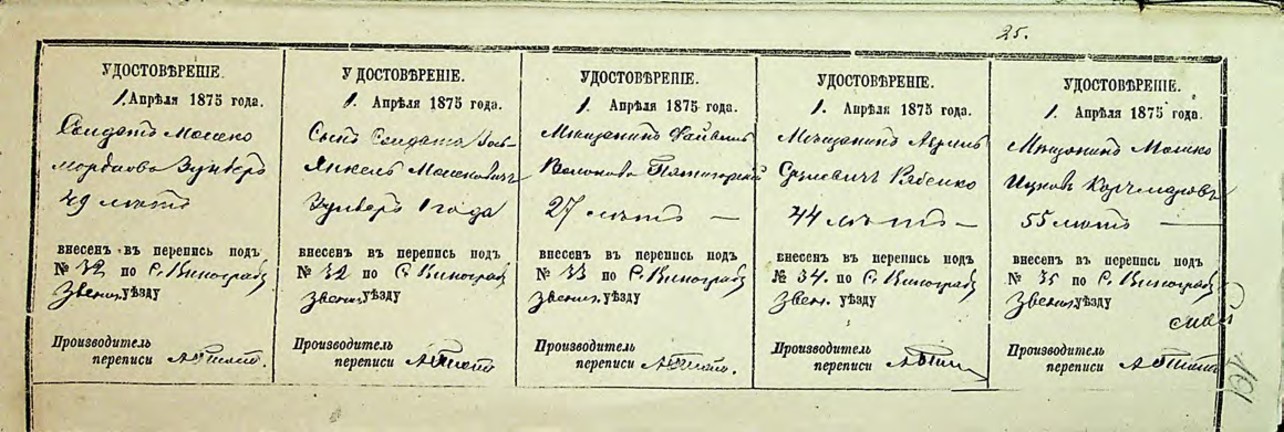 25.
УДОСТОВѢРЕНІЕ.
1. Апрѣля 1875 года.
Солдатъ Мошко
Мордкова Зунверъ
49 лѣтъ
внесенъ въ перепись подъ
№ 32 по С. Виноградъ
Звени. уѣзду
Производитель
переписи
УДОСТОВѢРЕНІЕ.
1. Апрѣля 1875 года.
Сынъ Солдата
Янкель Мошковичъ
Зунверъ 1 года
внесенъ въ перепись подъ
№ 32 по С. Виноградъ
Звени. уѣзду
Производитель
переписи
УДОСТОВѢРЕНІЕ.
1. Апрѣля 1875 года.
Мѣщанинъ Файвель
Волькова Пятигорскій
27 лѣтъ —
внесенъ въ перепись подъ
№ 33 по С. Виноградъ
Звени. уѣзду
Производитель
переписи
УДОСТОВѢРЕНІЕ.
1. Апрѣля 1875 года.
Мѣщанинъ
Срулевичъ Рябенко
44 лѣтъ —
внесенъ въ перепись подъ
№ 34. по С. Виноградъ
Звен. уѣзду
Производитель
переписи
УДОСТОВѢРЕНІЕ.
1. Апрѣля 1875 года.
Мѣщанинъ Мошко
Ицковъ Корчмаровъ
55 лѣтъ —
внесенъ въ перепись подъ
№ 35 по С. Виноградъ
Звени. уѣзду
Производитель
переписи
101